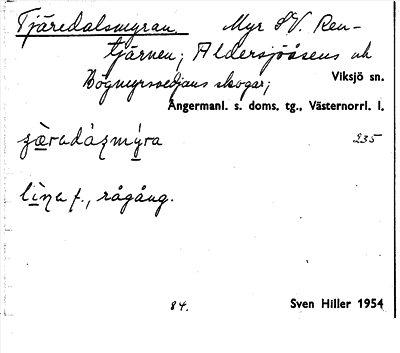 Tjäredalsmyran. Myr SV. Ren-
tjärnen; Aldersjöåsens och
Bögmyrsvedjans skogar; Viksjö sn.
Ångermanl. s. doms. tg., Västernorrl. l.
235
f., rågång.
84. Sven Hiller 1954